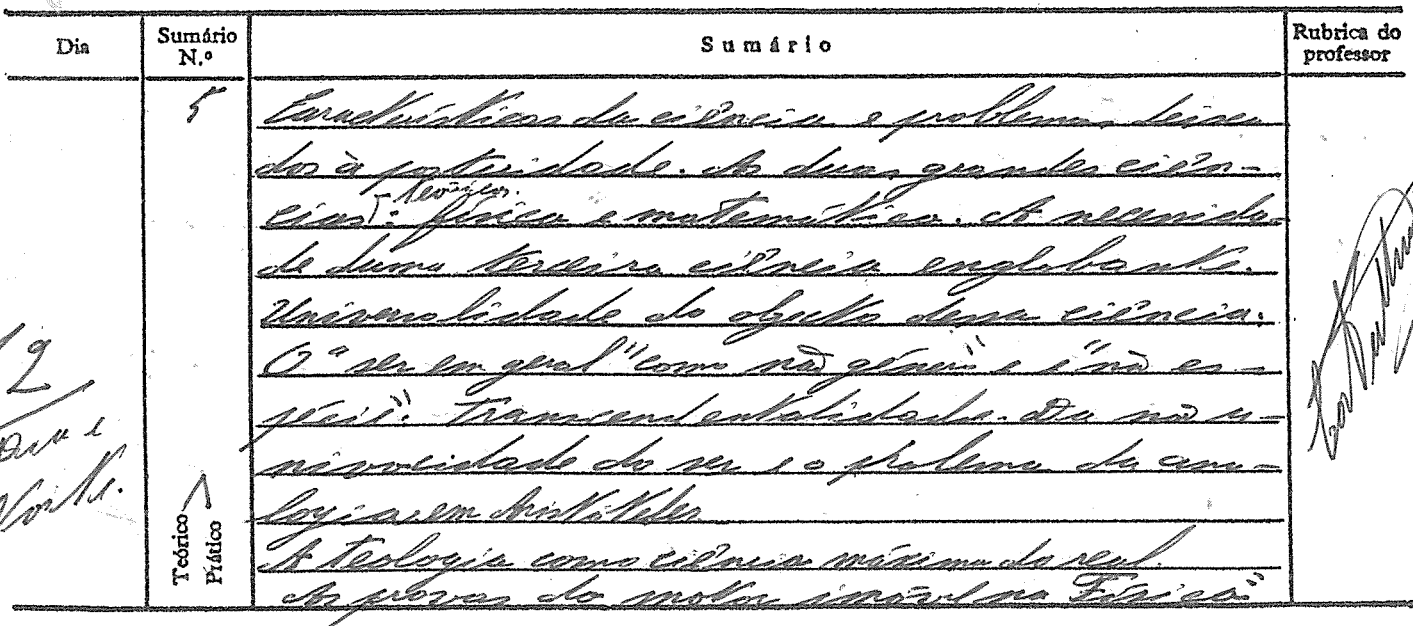 Dia
Sumário N.º
Sumário
Rubrica do professor
5
Características da ciência e problemas deixa
dos à posteridade. As duas grandes ciên-
teóricas.
cias: física e matemática. A necessida-
de duma terceira ciência englobante.
Universalidade do objecto dessa ciência.
O "ser em geral" "como não género" e "não es-
pécie". Transcendentalidade. Da não u-
nivocidade do ser e o problema da ana-
logia em Aristóteles
A Teologia como ciência máxima do real.
As provas do motor imóvel na Física"
Teórico
Prático